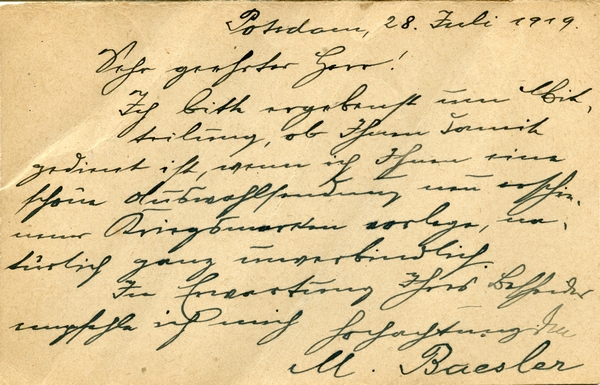 Potsdam, 28. Juli 1919.
Sehr geehrter Herr!
Ich bitte ergebenst um Mit-
teilung, ob Ihnen damit
gedient ist, wenn ich Ihnen eine
schöne Auswahlsendung neu erschie-
nener Kriegsmarken vorlege, na-
türlich ganz unverbindlich.
In Erwartung Ihres
empfehle ich mich hochachtungs
M. Baesler